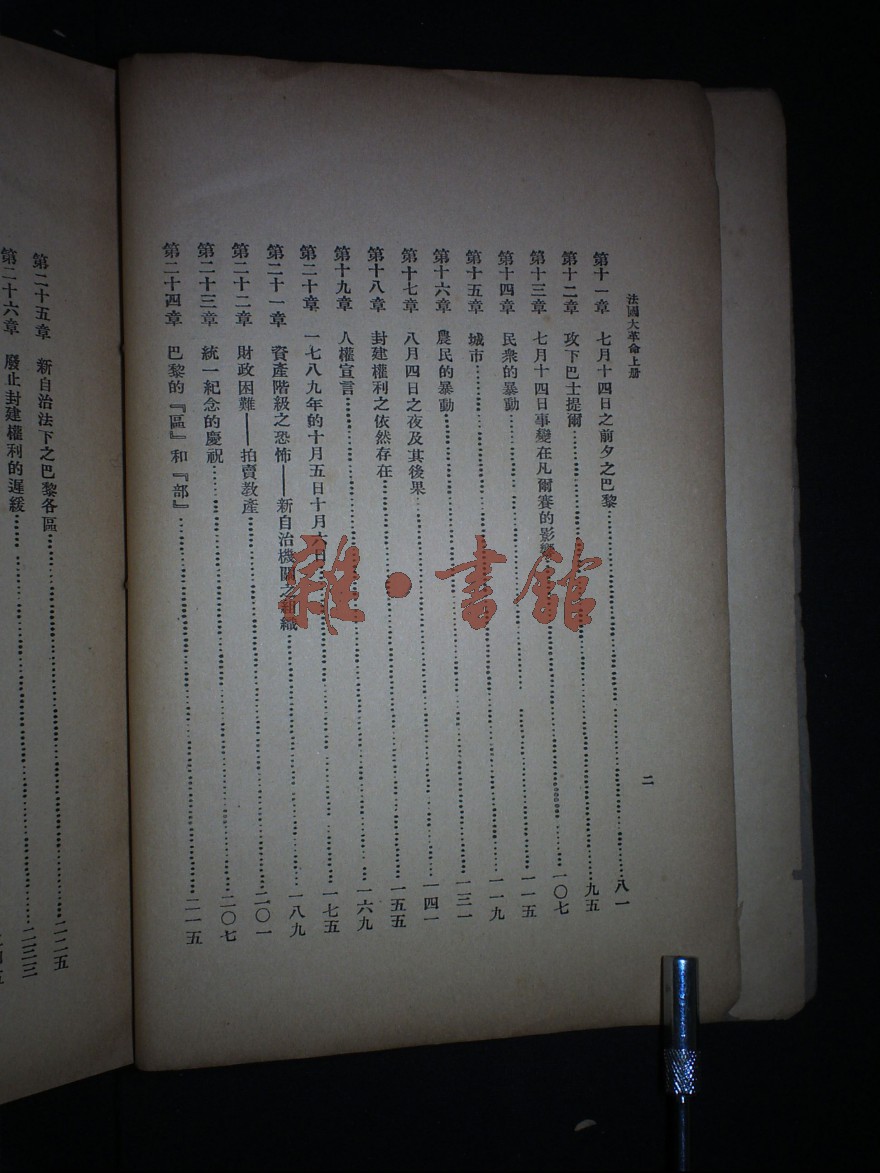 法國大革命上册
二
第十一章 七月十四日之前夕之巴黎……八一
第十二章 攻下巴士提爾……九五
第十三章 七月十四日事變在凡爾賽的影響……一〇七
第十四章 民衆的暴動……一一五
第十五章 城市……一一九
第十六章 農民的暴動……一三一
第十七章 八月四日之夜及其後果……一四一
第十八章 封建權利之依然存在……一五五
第十九章 人權宣言……一六九
第二十章 一七八九年的十月五日十月六日……一七五
第二十一章 資產階級之恐怖——新自治機關之組織……一八九
第二十二章 財政困難——拍賣教產……二〇一
第二十三章 統一紀念的慶祝……二〇七
第二十四章 巴黎的『區』和『部』……二一五
第二十五章 新自治法下之巴黎各區……二二五
第二十六章 廢止封建權利的遲緩……二三三
雜·書館